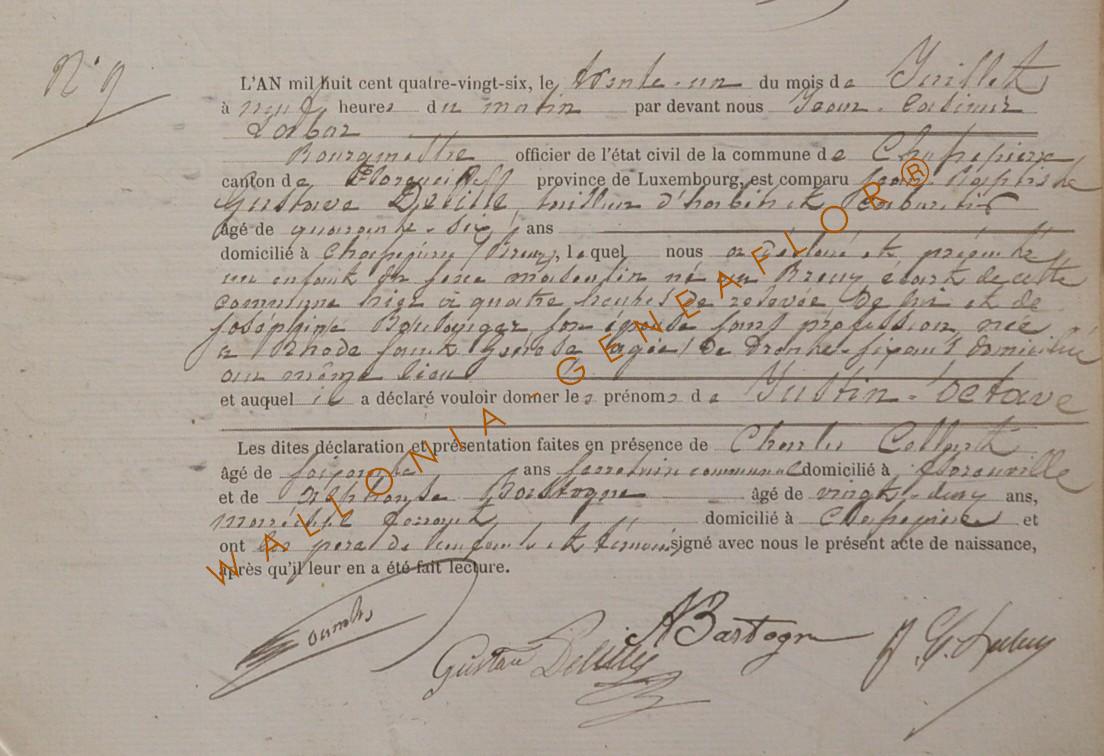 N° 9
L'AN mil huit cent quatre-vingt-six, le trente-un du mois de Juillet
à neuf heures du matin par devant nous Jean-Casimir
Bourgmestre officier de l'état civil de la commune de Chassepierre
canton de Florenville province de Luxembourg, est comparu Jean Baptiste
Gustave Delille, tailleur d'habits et
âgé de quarante-six ans
domicilié à Chassepierre (Breuy), lequel nous a déclaré et présenté
un enfant du sexe masculin né au Breuy écart de cette
commune hier à quatre heures de relevée De lui et de
Joséphine Boulanger son épouse sans profession, née
à agée de trente-six ans domiciliée
au même lieu
et auquel il a déclaré vouloir donner les prénoms de Justin-Octave
Les dites déclaration et présentation faites en présence de Charles Collard
âgé de soixante ans secrétaire communal domicilié à Florenville
et de Alphonse Bastogne âgé de vingt-deux ans,
maréchal ferrant domicilié à Chassepierre et
ont les père de l'enfant et témoins signé avec nous le présent acte de naissance,
après qu'il leur en a été fait lecture.
Gustave Delille
ABastogne
WALLONIA - GENEAFLOR ®